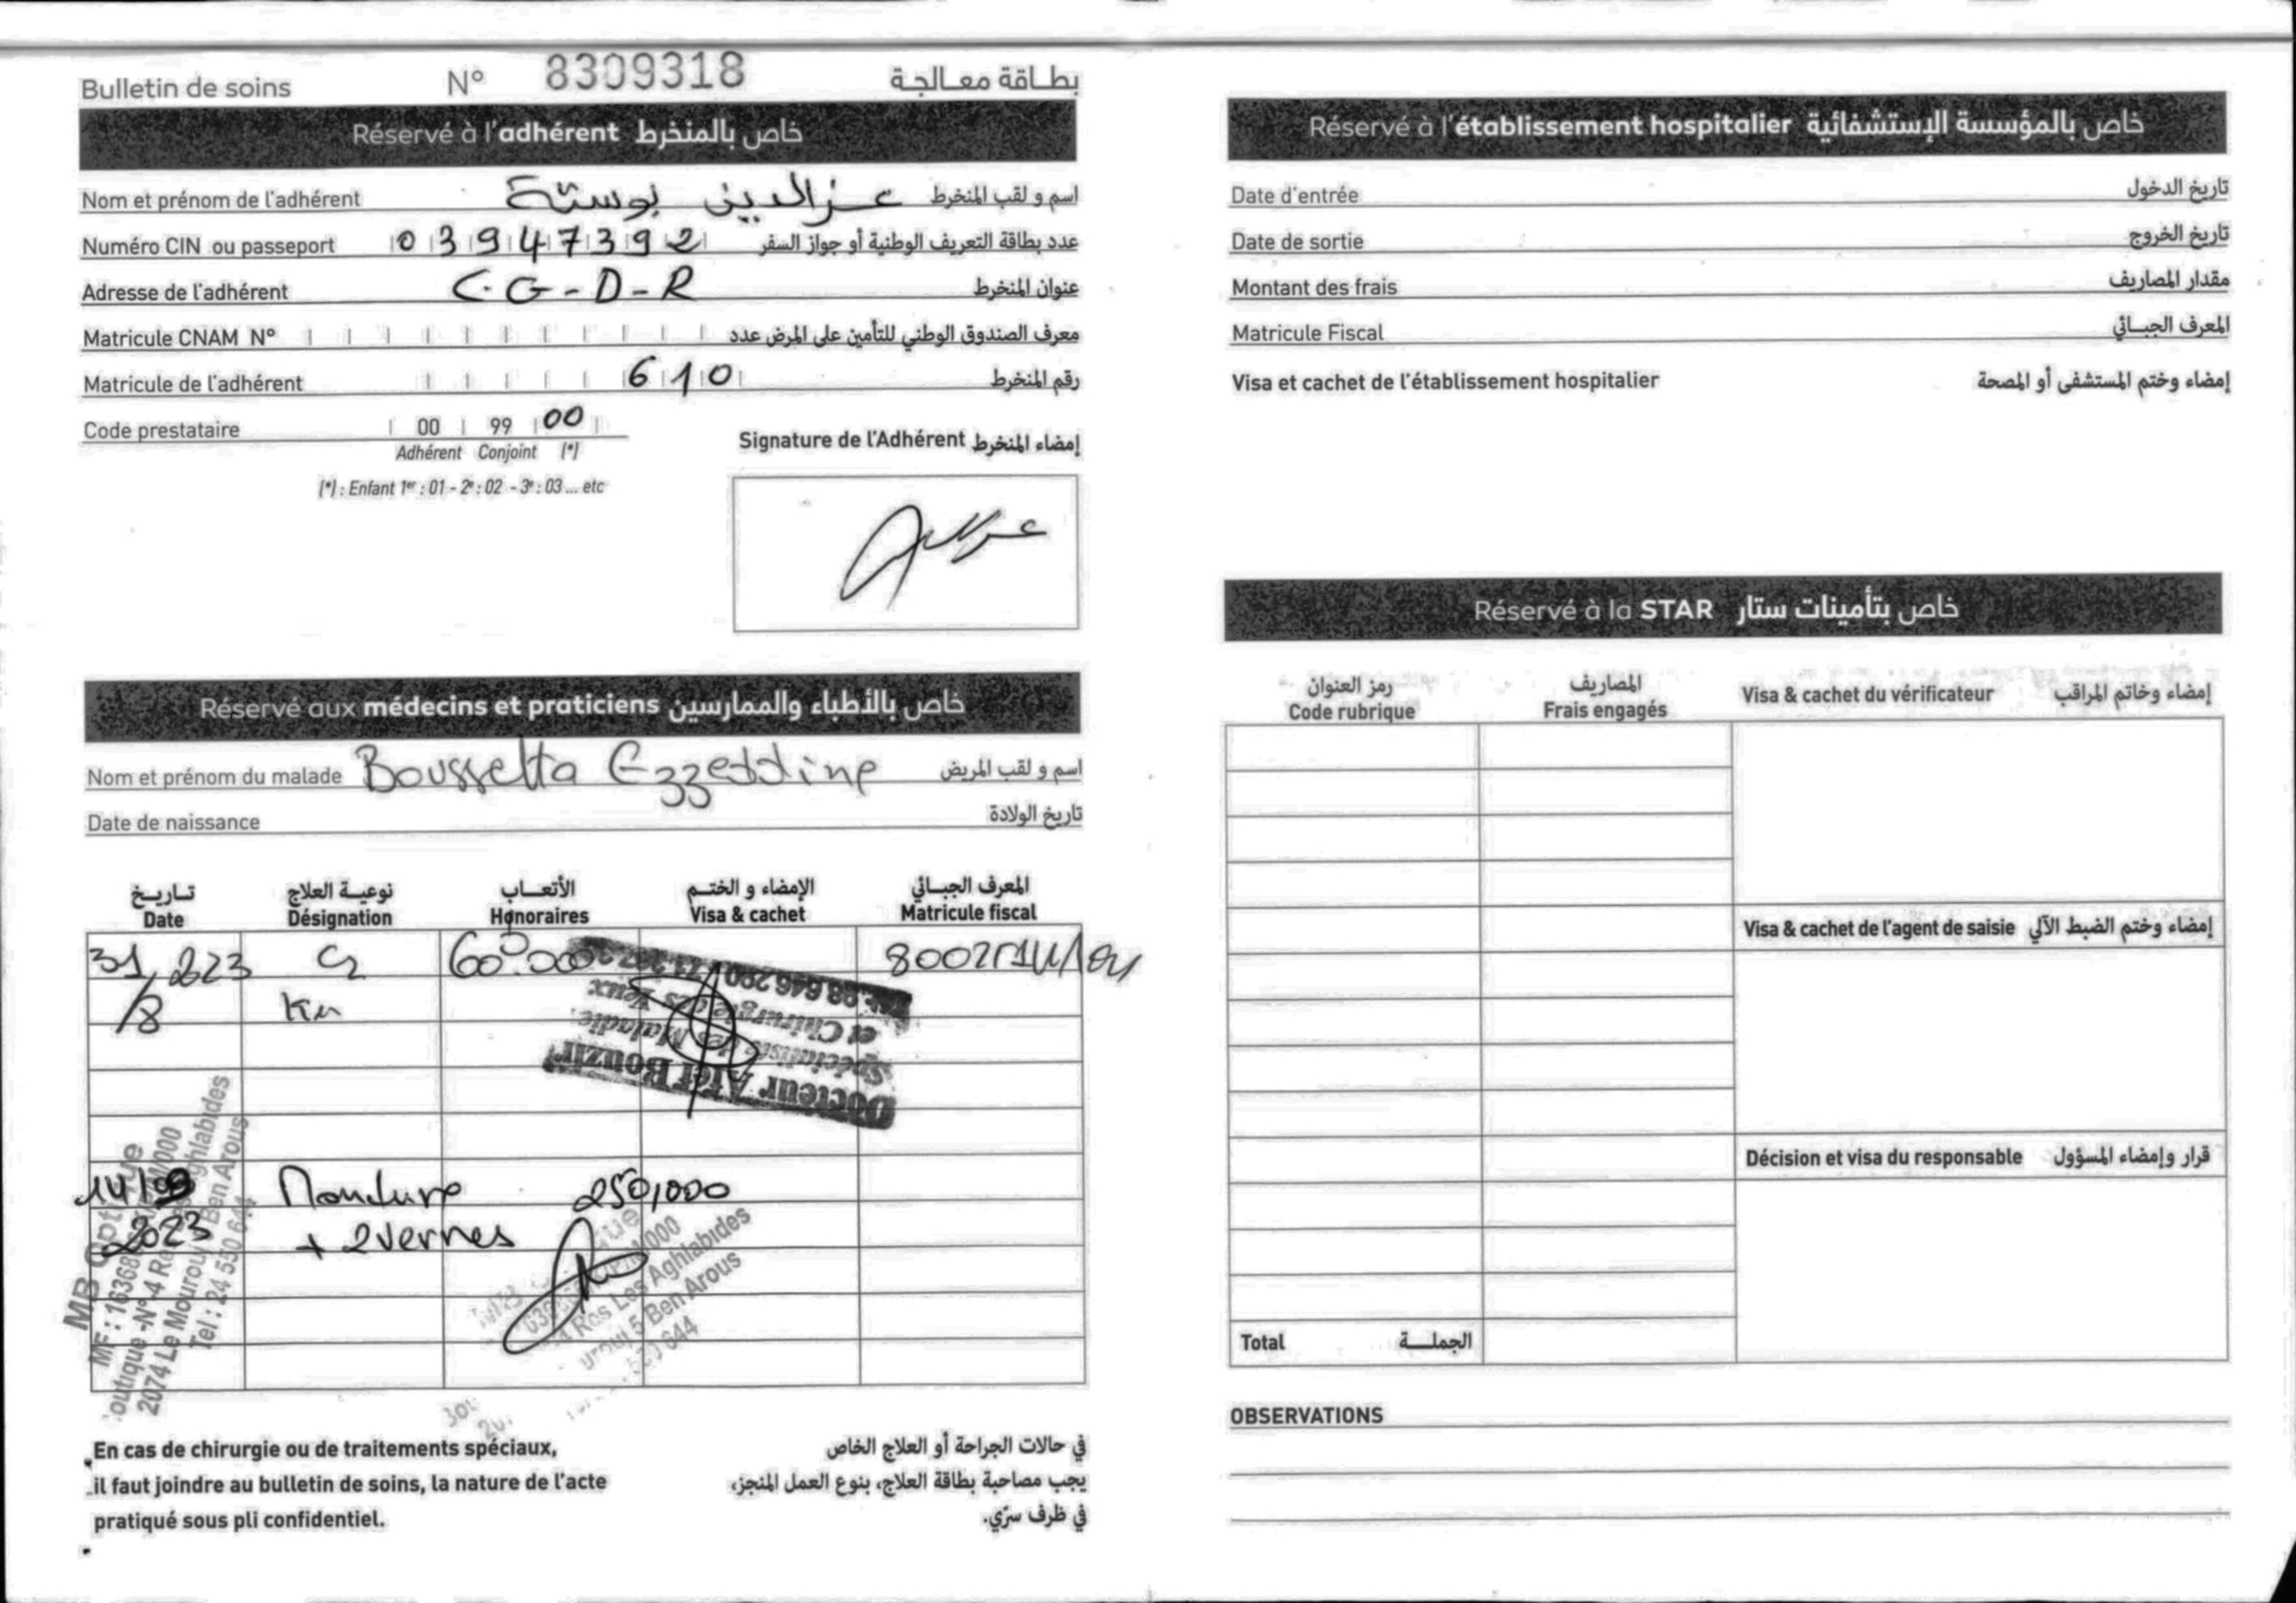 Bulletin de soins N° 8309318 بطاقة معالجة
Réservé à l'adhérent خاص بالمنخرط
Nom et prénom de l'adhérent عزالدين بوستة اسم و لقب المنخرط
Numéro CIN ou passeport 03947392 عدد بطاقة التعريف الوطنية أو جواز السفر
Adresse de l'adhérent C.G-D-R عنوان المنخرط
Matricule CNAM N° معرف الصندوق الوطني للتأمين على المرض عدد
Matricule de l'adhérent 610 رقم المنخرط
Code prestataire 00 99 00
Adhérent Conjoint (*)
(*) : Enfant 1er : 01 - 2e : 02 - 3e : 03 ... etc
Signature de l'Adhérent إمضاء المنخرط
Réservé aux médecins et praticiens خاص بالأطباء والممارسين
Nom et prénom du malade Boussetta Ezzeddine اسم و لقب المريض
Date de naissance تاريخ الولادة
تاريخ نوعية العلاج الأتعاب الإمضاء و الختم المعرف الجبائي
Date Désignation Honoraires Visa & cachet Matricule fiscal
31/8 2023 C2 60.000
Docteur Afef Bouziri
Spécialiste des Maladie
et Chirurgie des Yeux
98 646 290
14/09 Monture 250,000
2023 + 2 verres
MB Optique
Boutique -N° 4 Res Les Aghlabides
2074 Le Mourouj 5 Ben Arous
Tel : 24 550 644
Res Les Aghlabides
5 Ben Arous
644
En cas de chirurgie ou de traitements spéciaux,
il faut joindre au bulletin de soins, la nature de l'acte
pratiqué sous pli confidentiel.
في حالات الجراحة أو العلاج الخاص
يجب مصاحبة بطاقة العلاج، بنوع العمل المنجز،
في ظرف سرّي.
Réservé à l'établissement hospitalier خاص بالمؤسسة الإستشفائية
Date d'entrée تاريخ الدخول
Date de sortie تاريخ الخروج
Montant des frais مقدار المصاريف
Matricule Fiscal المعرف الجبائي
Visa et cachet de l'établissement hospitalier إمضاء وختم المستشفى أو المصحة
Réservé à la STAR خاص بتأمينات ستار
رمز العنوان المصاريف
Code rubrique Frais engagés Visa & cachet du vérificateur إمضاء وخاتم المراقب
Visa & cachet de l'agent de saisie إمضاء وختم الضبط الآلي
Décision et visa du responsable قرار وإمضاء المسؤول
Total الجملة
OBSERVATIONS